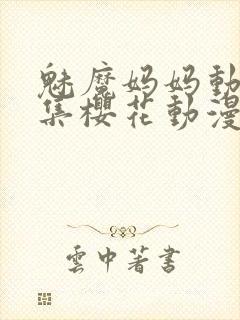 魅魔妈妈動
集櫻花動漫
雲中著書